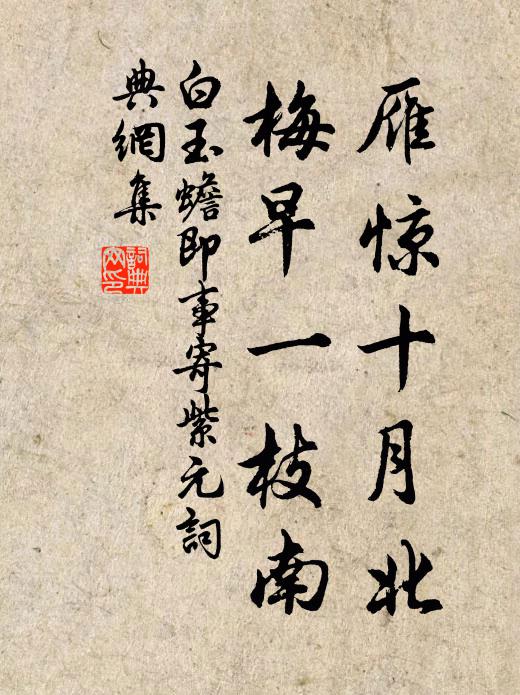 雁惊十月北
梅早一枝南
白玉蟾即事寄紫元詞
典網集
詞典